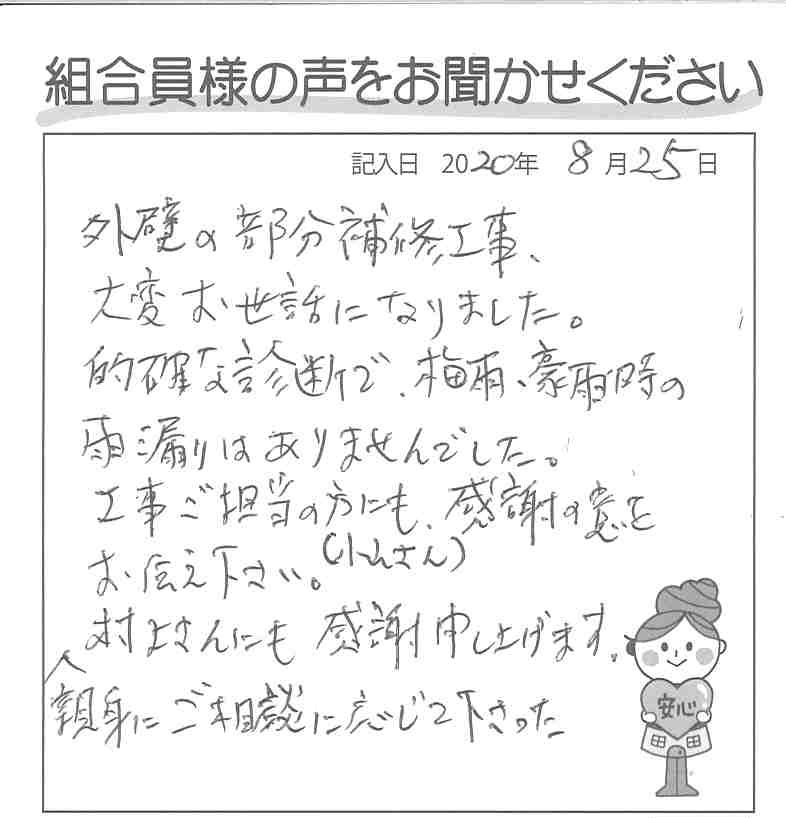 組合員様の声をお聞かせください
記入日 2020年 8月25日
外壁の部分補修工事、
大変お世話になりました。
的確な診断で、梅雨、豪雨時の
雨漏りはありませんでした。
工事ご担当の方にも、感謝の意を
お伝え下さい。(小山さん)
村上さんにも 感謝申し上げます。
親身にご相談に応じて下さった
安心